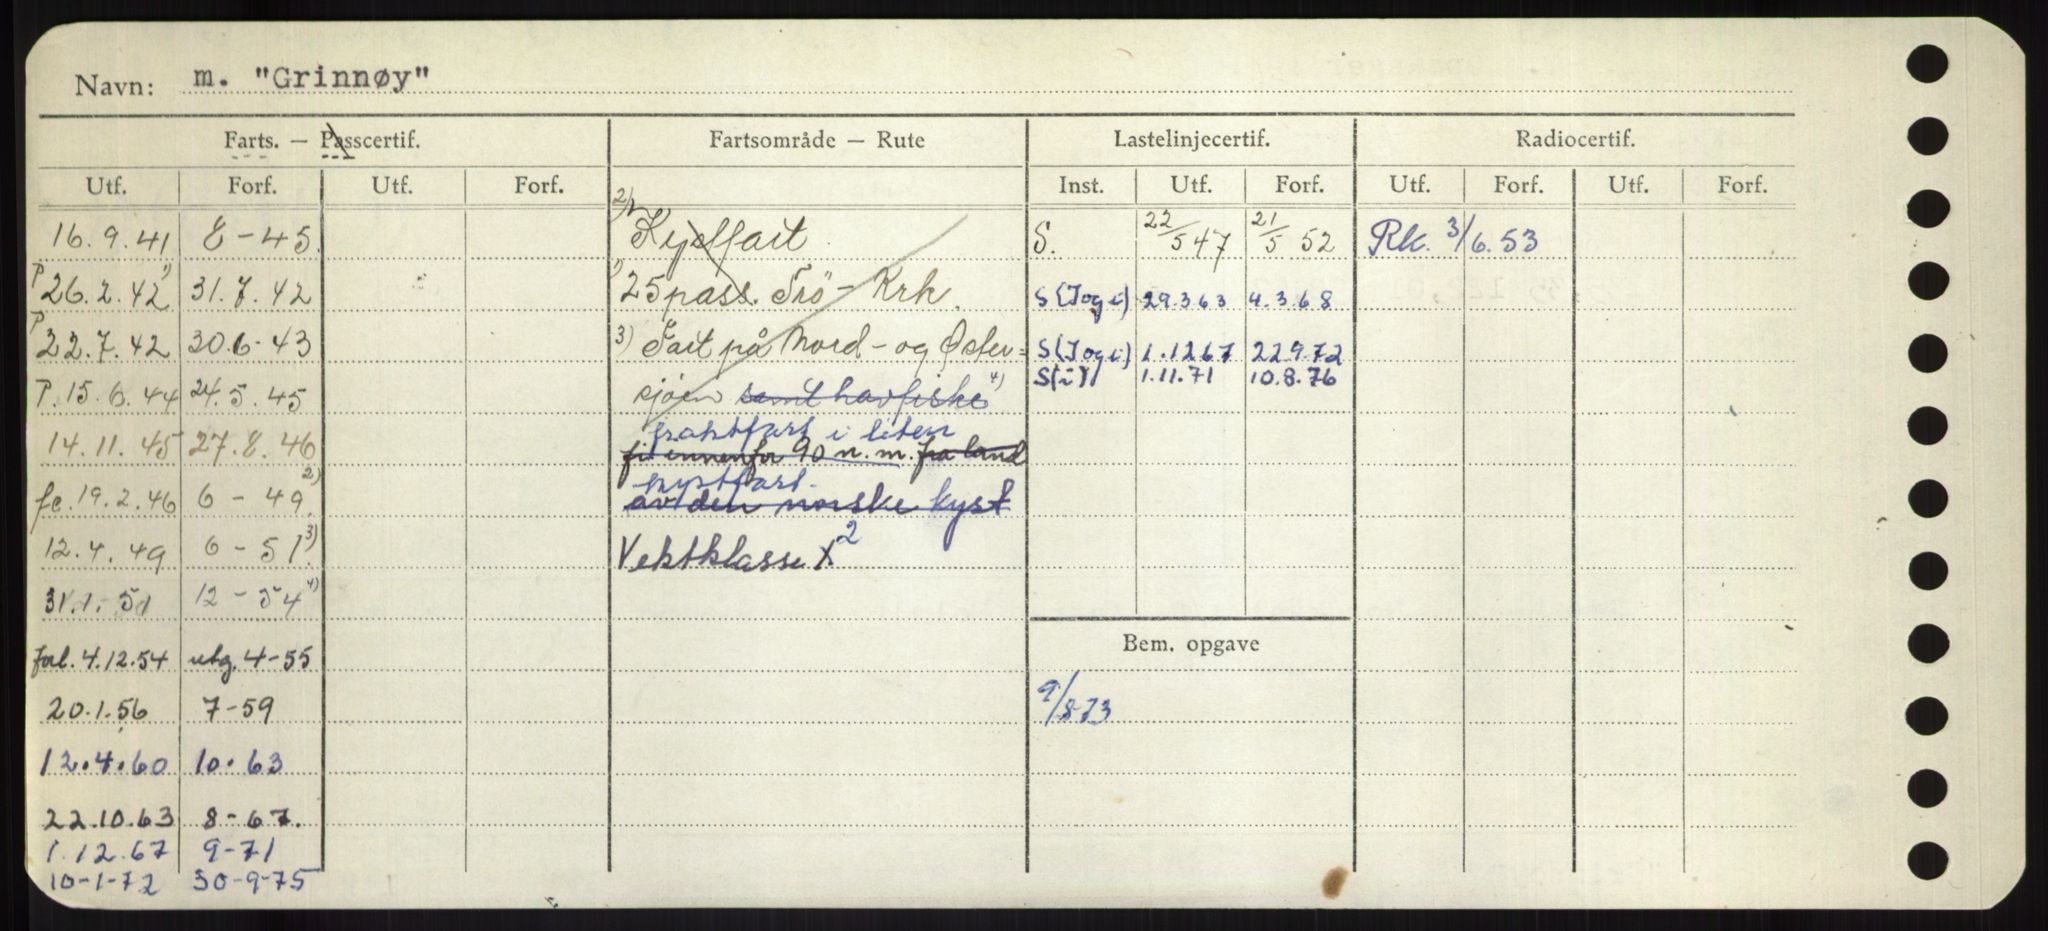 Navn: m. "Grinnøy"
Farts. — Passcertif. Fartsområde — Rute Lastelinjecertif. Radiocertif.
Utf. Forf. Utf. Forf. Inst. Utf. Forf. Utf. Forf. Utf. Forf.
16.9.41 8-45. 2) Kystfart. S. 22/5 47 21/5 52 Rk. 3/6.53
P 26.2.42 1) 31.7.42 1) 25 pass. Trö - Krk. S (I og i) 29.3 63 4.3.68
P 22.7.42 30.6-43 3) Fart på Nord- og Øster= S (I og i) 1.12 67 22 9.72
S (i) 1.11.71 10.8.76
P. 15.6.44 24.5.45 sjøen samt havfiske 4)
fraktfart i liten
14.11.45 27.8.46 innenfor 90 n.m. fra land
kystfart.
fe. 19.2.46 6-49. 2) av den norske kyst
12.4.49 6-51. 3) Vektklasse X 2
31.1-51 12-54 4)
Bem. opgave
forl. 4.12.54 utg. 4-55
20.1.56 7-59 9/8-73
12.4.60 10.63
22.10.63 8-67.
1.12.67 9-71
10-1-72 30-9-75